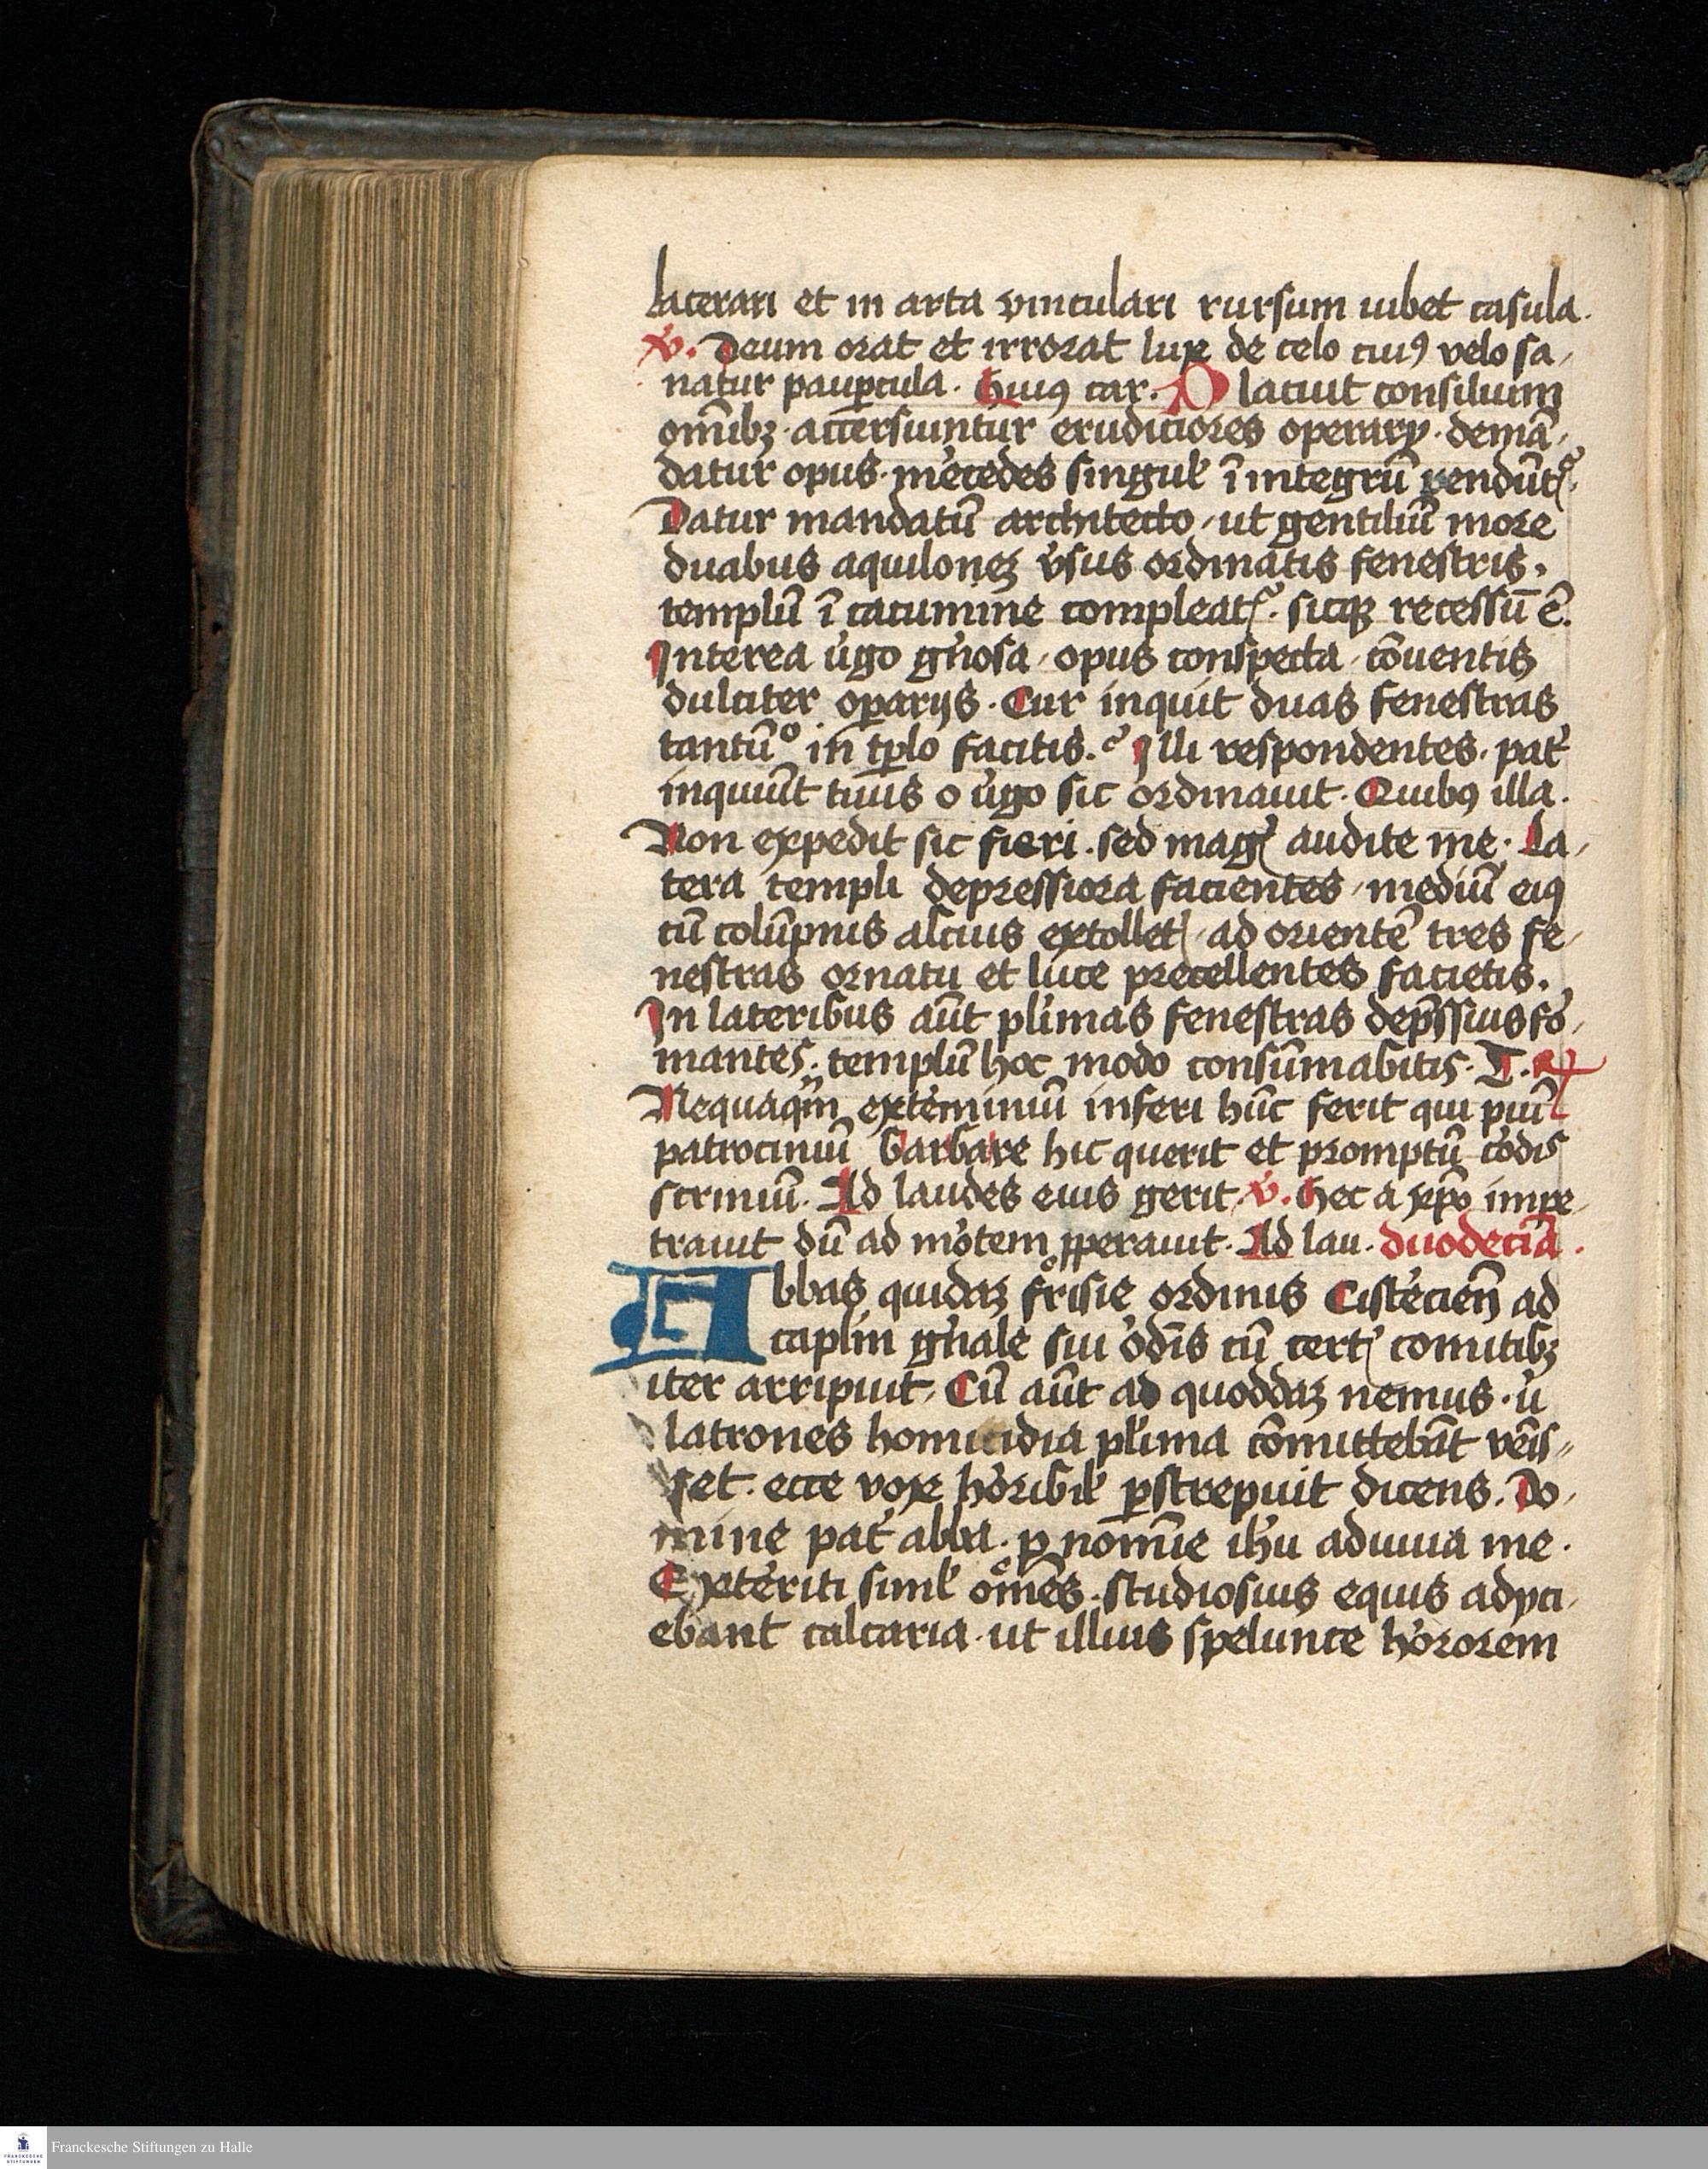 lacerari et in arta vinculari rursum iubet casula.
v̕. Deum orat et irrorat lux de celo cuiꝰ velo sa⸗
natur paup̲cula. Huiꝰ car. P lacuit consilium
om̄ibꝫ. accersiuntur erudiciores operarÿ. demā⸗
datur opus. m̕cedes singul̕ ī integrū rendūt᷑.
Datur mandatū architecto, ut gentiliū more
duabus aquilonēꝫ v̕sus ordinatis fenestris,
templū ī cacumine compleat᷑. sicqꝫ recessū ē.
Interea v̕go gn̄osa, opus conspecta, cōuentis
dulciter op̲arijs. Cur inquit duas fenestras
tantūº in tp̄lo facitis. Illi respondentes. pat̕
inquiūt tuus o v̕go sic ordinauit. Quibꝰ illa.
Non expedit sic fieri. sed mag᷑ audite me. La⸗
tera templi depressiora facientes, mediū eiꝰ
cū colūpnis alcius extollet᷑, ad orientē tres fe⸗
nestras ornatu et luce precellentes facietis.
In lateribus aūt pl̕imas fenestras dep̄ssius fo̕⸗
mantes. templū hoc modo consūmabitis. T. ℟
Nequaqᷓm ext̕miniū inferi hūc ferit qui piū
patrociniū barbare hic querit et promptū co̕dis
scriniū. Ad laudes eius gerit v̕. Hec a xp̄o impe⸗
trauit dū ad mo̕tem ꝓperauit. Ad lau. duodecīa.
Abbas quidaꝫ frisie ordinis Cist̕cien̄ ad
capl̄m gn̄ale sui o̕dīs cū cert᷑ comitibꝫ
iter arripuit. Cū aūt ad quoddaꝫ nemus. u̕
latrones homicidia pl̕ima cōmittebāt venis⸗
set. ecce vox ho̕ribil̕ p̲strepuit dicens. Do⸗
mine pat̕ abba. p̲ nomīe ih̄u adiuua me.
Ext̕riti simul̕ om̄es. studiosius equis adyci⸗
ebant calcaria. ut illius spelunce ho̕rorem
Franckesche Stiftungen zu Halle
FRANCKESCHE
STIFTUNGEN